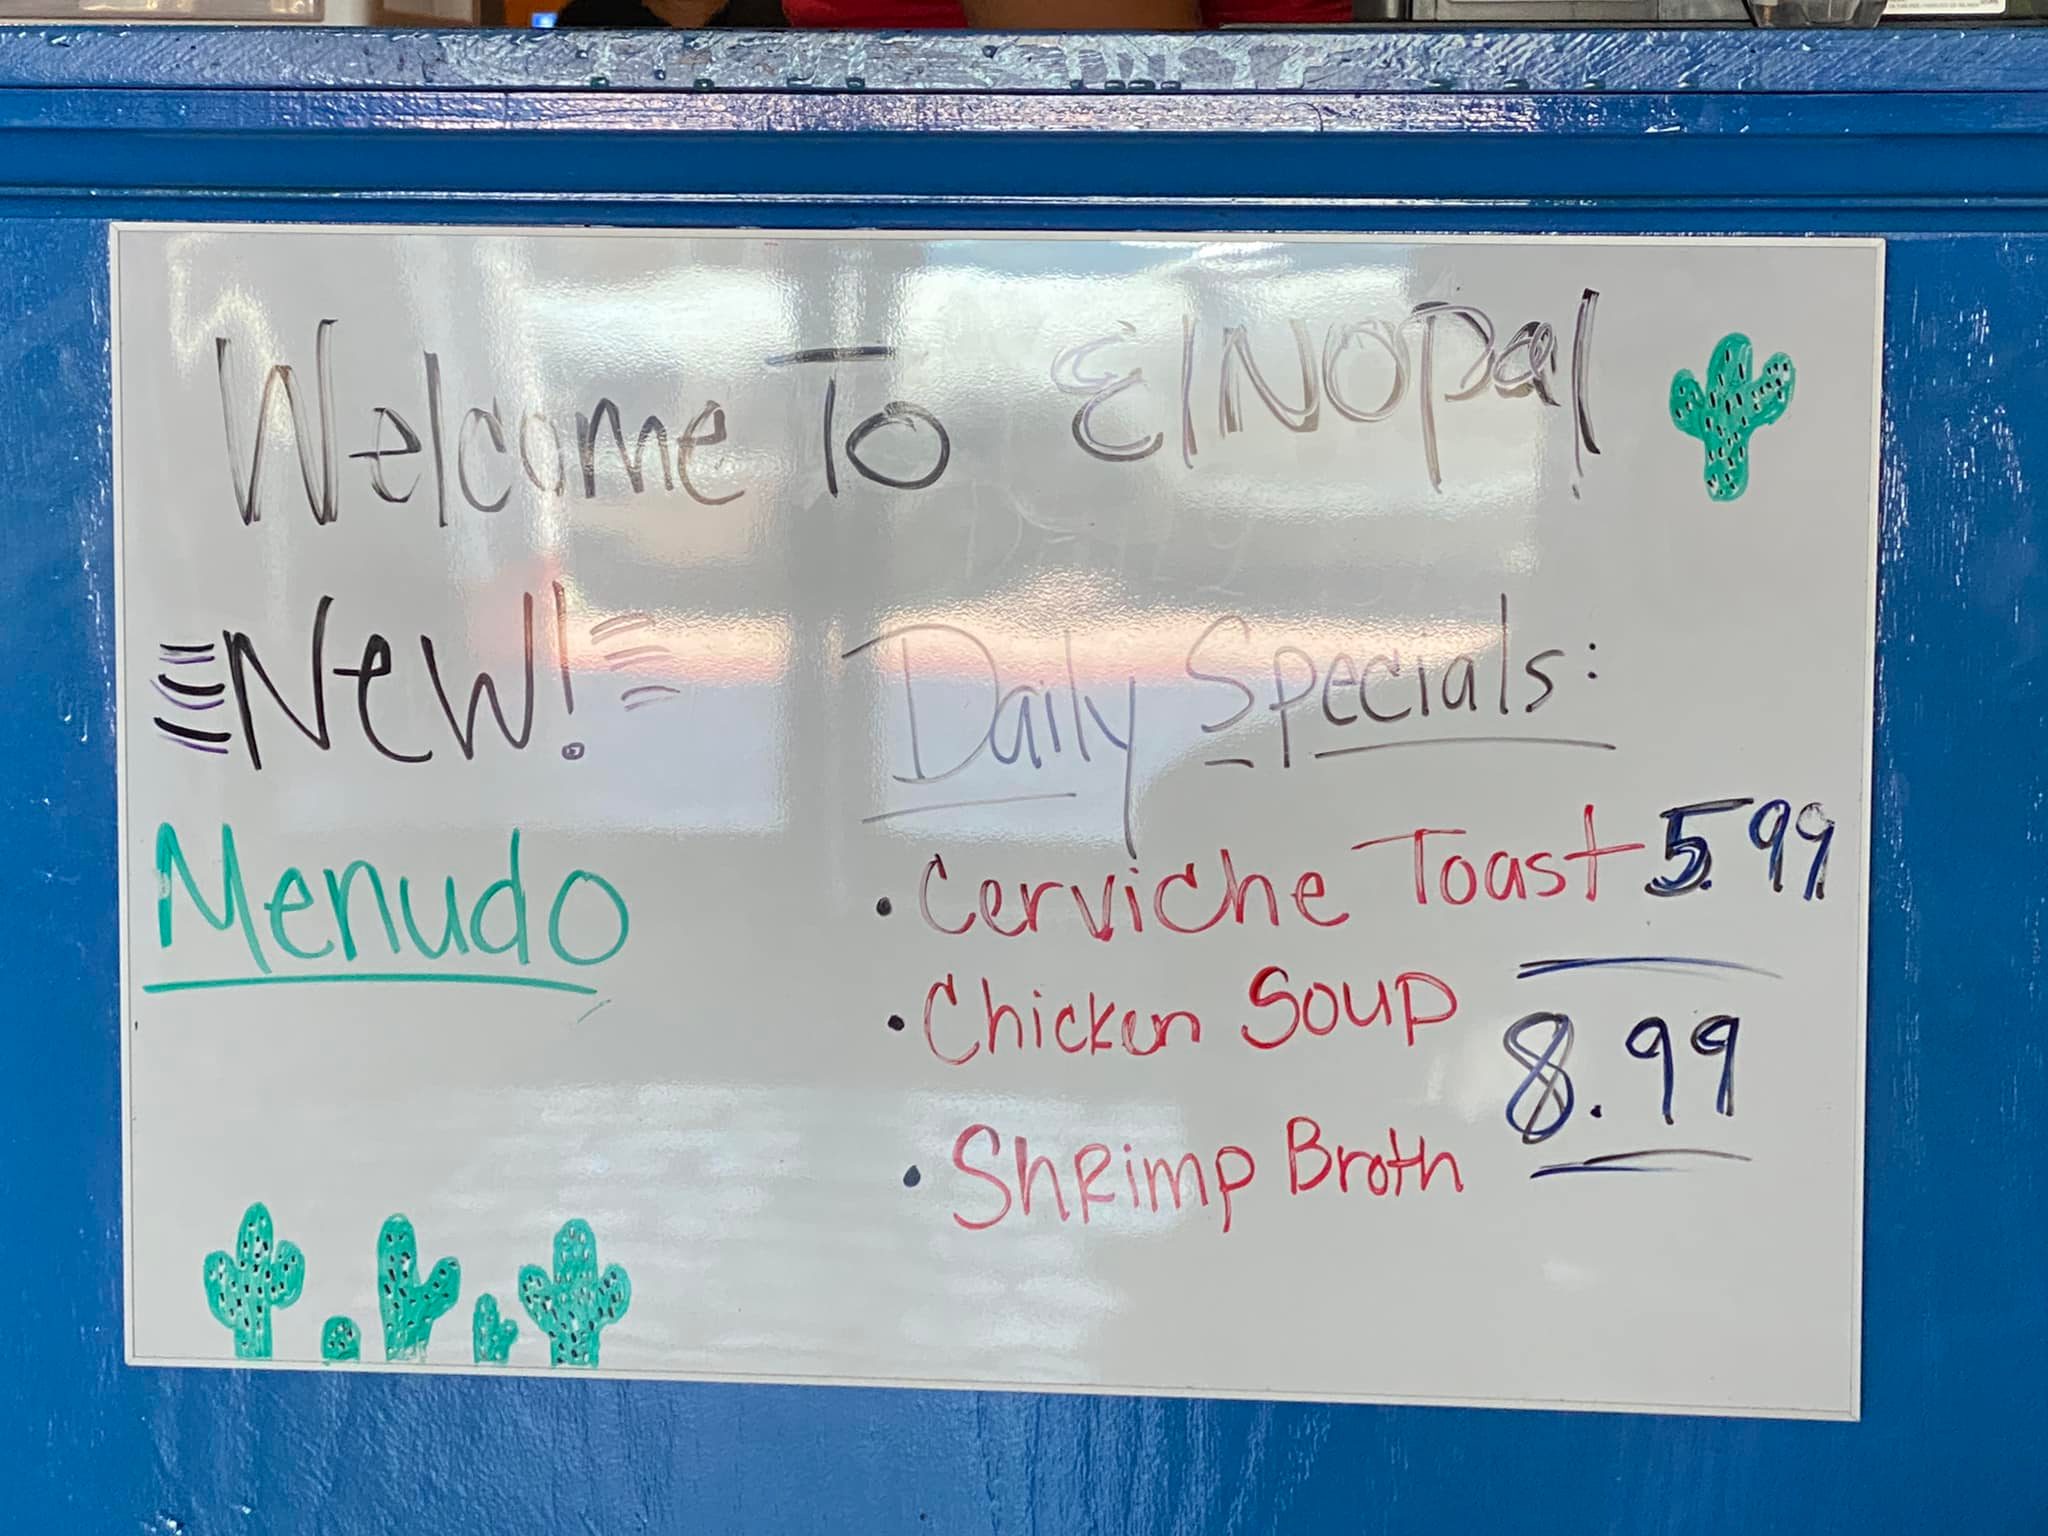 Welcome To El Nopal
New!
Menudo
Daily Specials:
• Cerviche Toast 5.99
• Chicken Soup
8.99
• Shrimp Broth